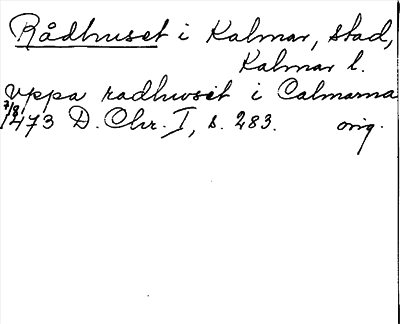 Rådhuset i Kalmar, stad,
Kalmar l.
Uppa radhuset i Calmarna
7/8 1473 D. Chr. I, s. 283. orig.